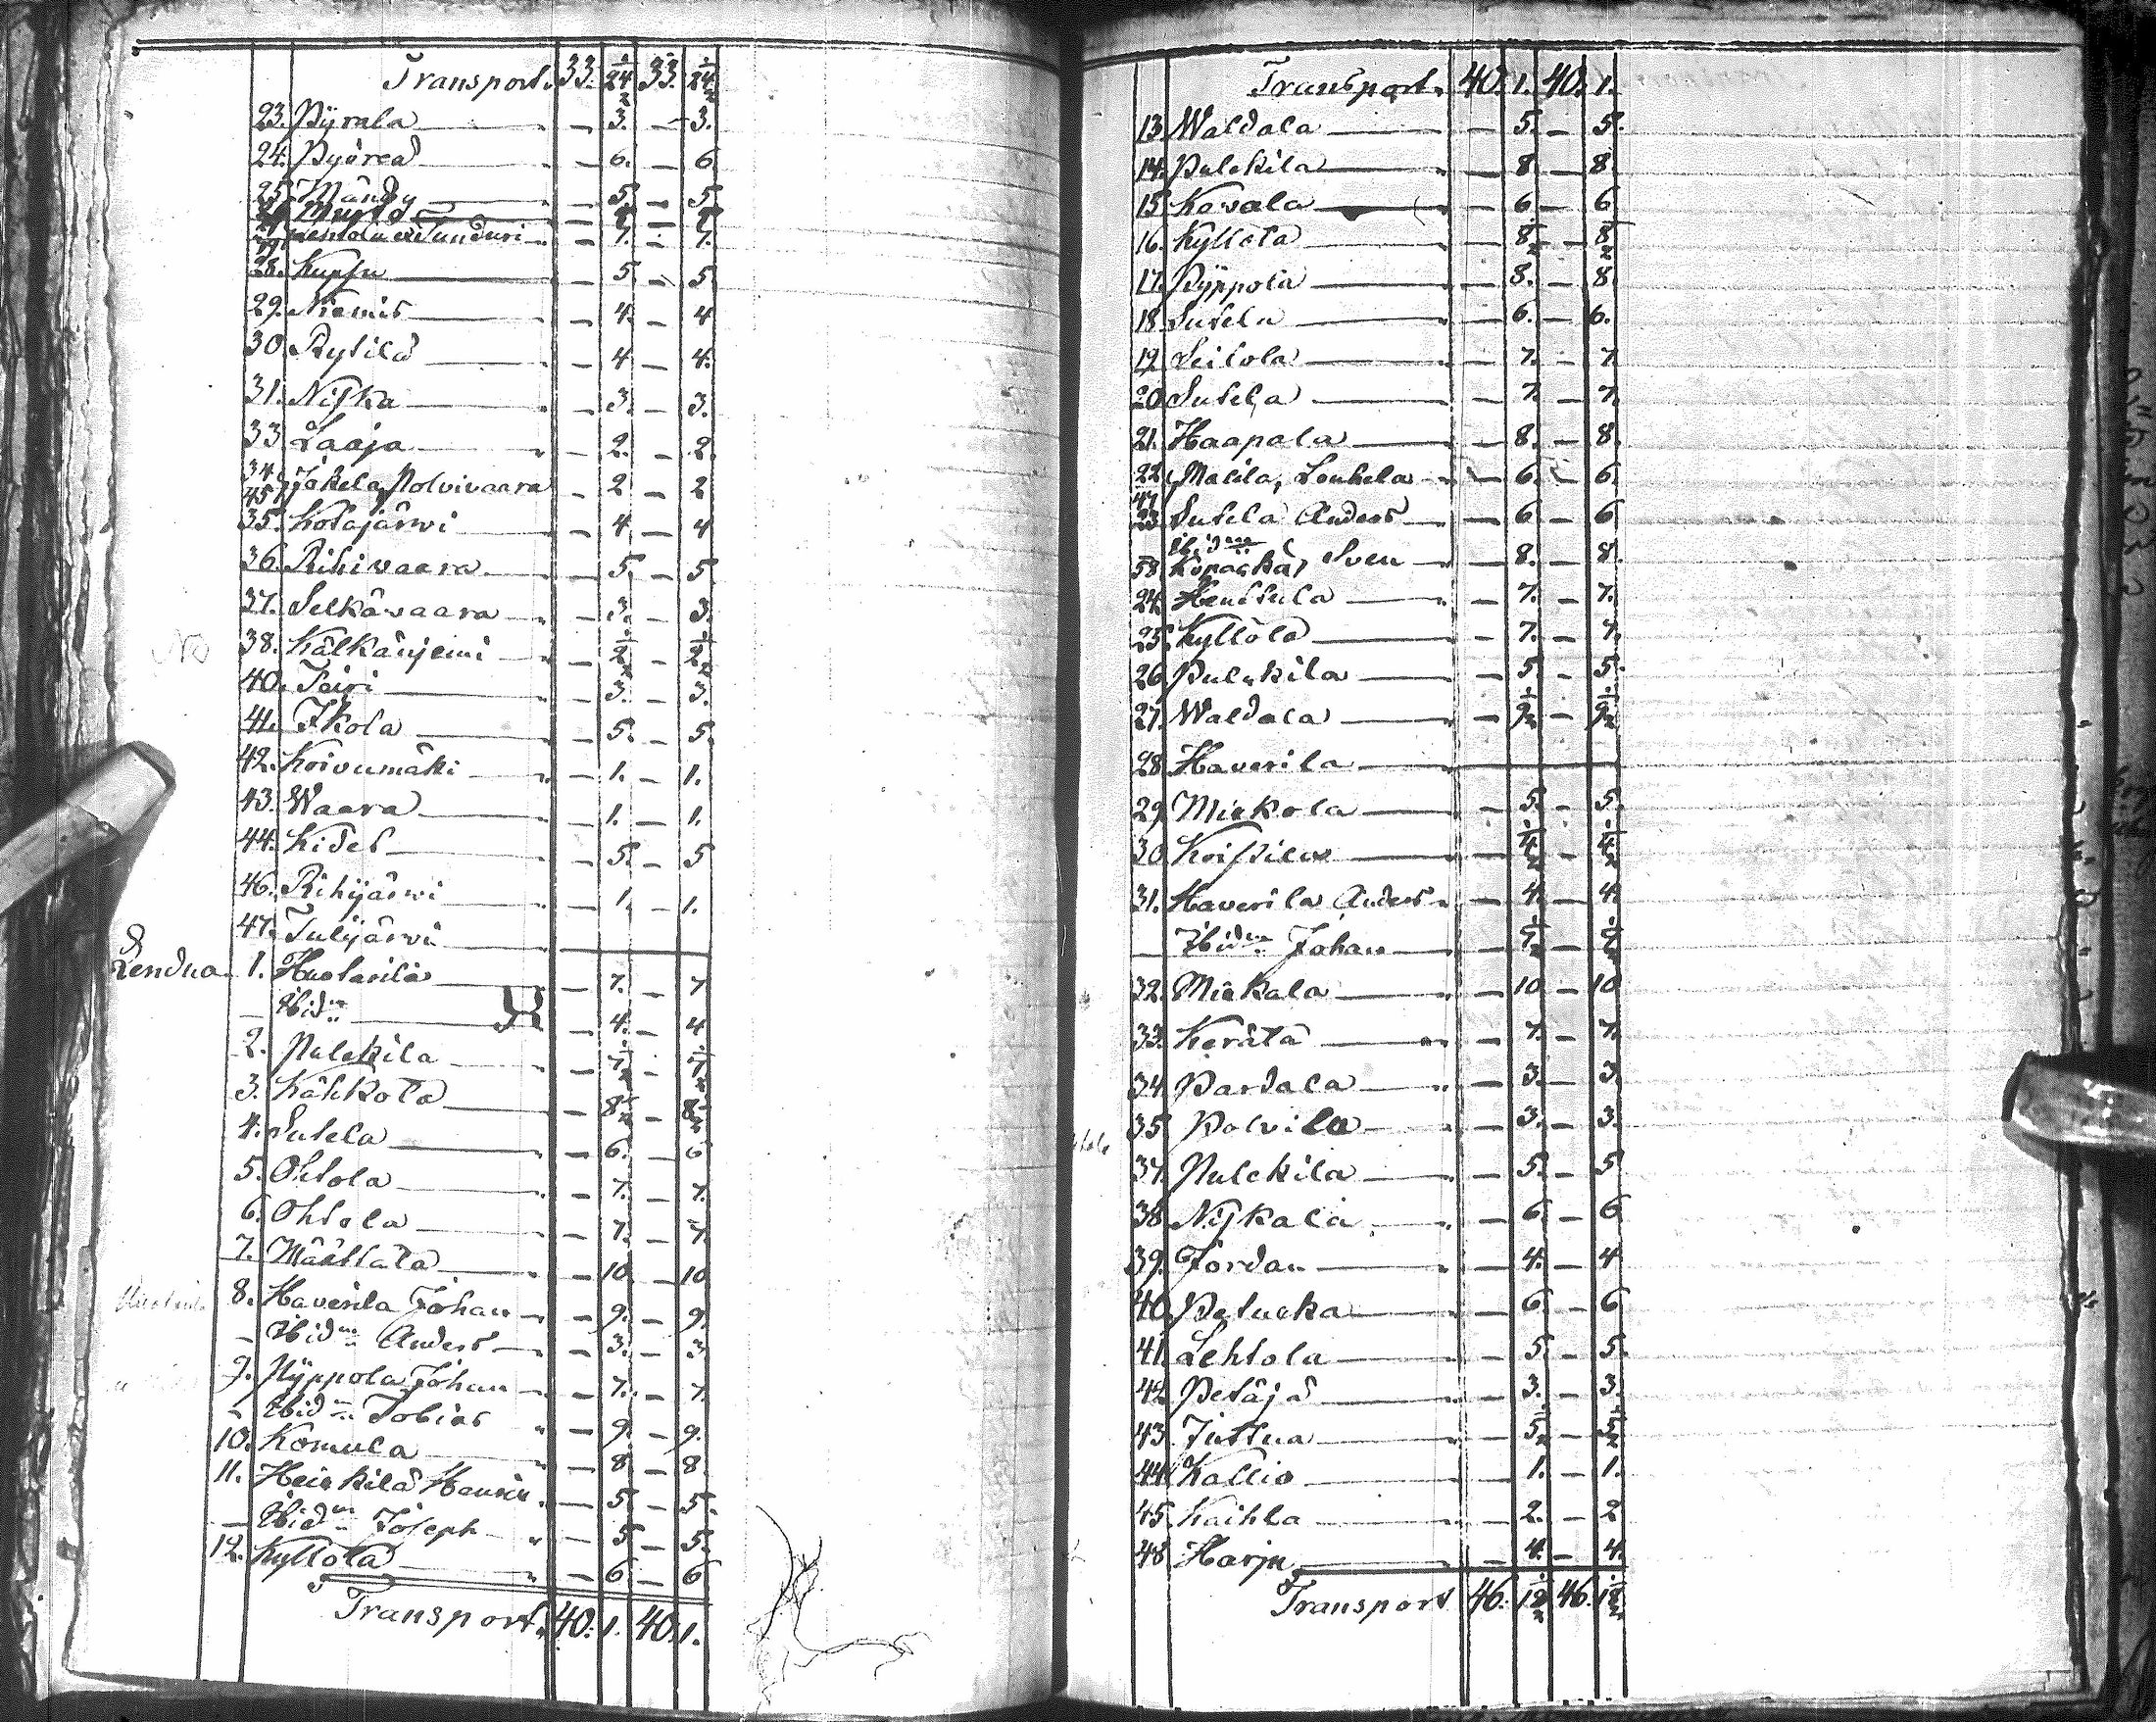 Transport. 33. 24½ 33. 24½
23. Pÿrala — 3. — 3.
24. Pyöreä — 6. — 6
25. Mändy — 5. — 5
— 1. — 1.
28. Kupsu — 5 — 5
29. Niemis — 4. — 4
30 Rytilä — 4 — 4.
31. Niska — 3. — 3.
33 Laaja — 2. — 2.
34. 45. Jäkelä, Polvivaara — 2 — 2
35. Kotajärwi — 4 — 4
36 Rihivaara — 5. — 5
37. Selkävaara — 3. — 3.
No 38. Kälkänjemi — 2½ — 2½
40. Feiri — 3. — 3.
41. Ikola — 5. — 5.
42. Koivumäki — 1. — 1.
43. Waara — 1. — 1.
44. Kides — 5. — 5
46. Rihijärwi — 1. — 1.
47. Tulijärvi —
Rendua 1. Huotarila — 7. — 7
— Ibidm — 4. — 4
2. Pulckila — 7½ — 7½
3. Kähkölä — 8½ — 8½
4. Sutela — 6. — 6
5. Ohtola — 7. — 7.
6. Ohtola — 7. — 7
7. Määttälä — 10 — 10
8. Haverila Johan — 9. — 9.
— Ibidm Anders — 3. — 3
9. Pÿppola Johan — 7. — 7.
— Ibidm Tobias — 9. — 9.
10. Komula — 8 — 8
11. Heickilä Henric — 5 — 5.
— Ibidm Joseph — 5 — 5.
12. Kyllölä — 6 — 6
Transport. 40. 1. 40. 1.
Transport. 40. 1. 40. 1.
13 Waldala — 5. — 5.
14. Pulckila — 8 — 8
15 Kavala — 6 — 6
16. Kyllölä — 8½ — 8½
17. Pÿppola — 8. — 8
18 Sutela — 6. — 6.
19. Leitola — 7. — 7.
20 Sutela — 7. — 7.
21. Haapala — 8. — 8.
22 47 Malila, Louhela — 6. — 6.
23 Sutela Anders — 6 — 6
53 Ibidm Kopackä, Sven — 8. — 8.
24. Henttula — 7. — 7.
25. Kyllölä — 7. — 7.
26 Pulckila — 5 — 5.
27. Waldala — 9½ — 9½
28 Haverila —
29 Mickola — 5. — 5.
30 Koistila — 4½ — 4½
31. Haverila Anders — 4. — 4.
— Ibidm Johan — 7½ — 7½
32. Mickala — 10 — 10
33. Kerälä — 7. — 7.
34 Pardala — 3. — 3
35 Polvila — 3. — 3.
37. Pulckila — 5. — 5
38 Niskala — 6. — 6
39. Jordan — 4. — 4
40. Pelucka — 6. — 6
41. Lehtola — 5. — 5.
42. Petäjä — 3. — 3.
43. Juttua — 5½ — 5½
44. Kallio — 1. — 1.
45. Kaihla — 2. — 2
48 Harju — 4. — 4.
Transport 46. 12½ 46. 12½